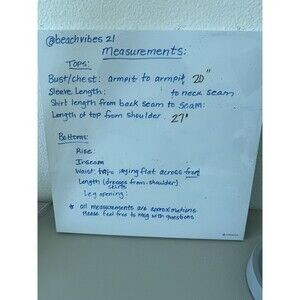 @beachvibes21
Measurements:
Tops:
Bust/Chest: armpit to armpit 20"
Sleeve Length: to neck seam
Shirt length from back seam to seam:
Length of top from shoulder 27"
Bottoms:
Rise:
Inseam
Waist: laying flat across front
Length (dresses from shoulder)
skirts
Leg opening:
* all measurements are approximations
Please feel free to msg with questions